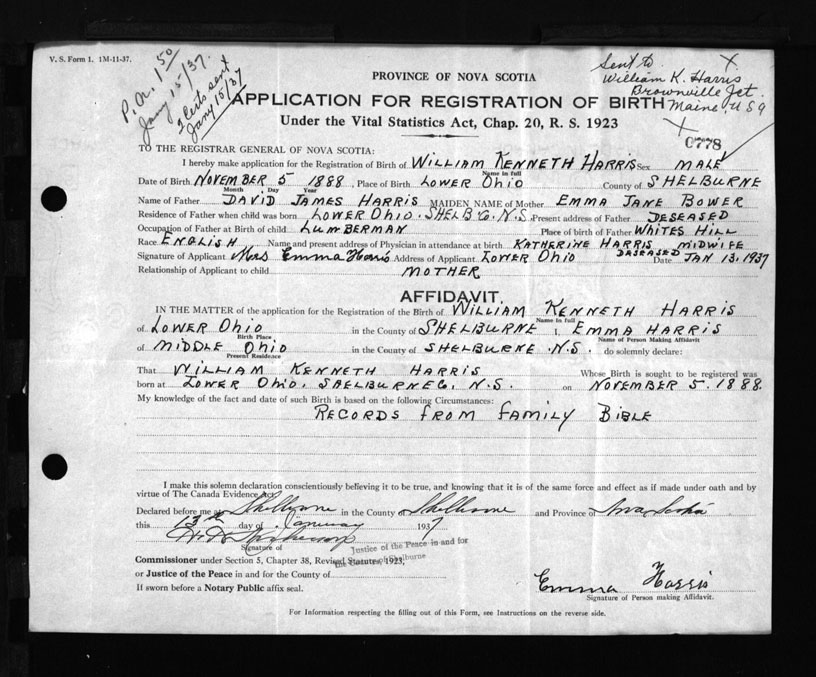 V. S. Form 1. 1M-11-37.
P.A. 1.50
Jany 15/37.
2 Certs sent
Jany 15/37
Sent to X
William K. Harris
Brownville Jct.
Maine, U S A
X
PROVINCE OF NOVA SCOTIA
APPLICATION FOR REGISTRATION OF BIRTH
Under the Vital Statistics Act, Chap. 20, R. S. 1923
0778
TO THE REGISTRAR GENERAL OF NOVA SCOTIA:
I hereby make application for the Registration of Birth of WILLIAM KENNETH HARRIS Sex MALE
Name in full
Date of Birth NOVEMBER 5 1888, Place of Birth LOWER OHIO County of SHELBURNE
Month Day Year
Name of Father DAVID JAMES HARRIS MAIDEN NAME of Mother EMMA JANE BOWER
Residence of Father when child was born LOWER OHIO. SHELB CO. N.S. Present address of Father DESEASED
Occupation of Father at Birth of child LUMBERMAN Place of birth of Father WHITES HILL
Race ENGLISH Name and present address of Physician in attendance at birth KATHERINE HARRIS MIDWIFE
DESEASED
Signature of Applicant Mrs Emma Harris Address of Applicant LOWER OHIO Date JAN 13, 1937
Relationship of Applicant to child MOTHER
AFFIDAVIT.
IN THE MATTER of the application for the Registration of the Birth of WILLIAM KENNETH HARRIS
Name in full
of LOWER OHIO in the County of SHELBURNE I, EMMA HARRIS
Birth Place Name of Person Making Affidavit
of MIDDLE OHIO in the County of SHELBURNE N.S. do solemnly declare:
Present Residence
That WILLIAM KENNETH HARRIS Whose Birth is sought to be registered was
born at LOWER OHIO, SHELBURNE CO. N.S. on NOVEMBER 5. 1888.
My knowledge of the fact and date of such Birth is based on the following Circumstances:
RECORDS FROM FAMILY BIBLE
I make this solemn declaration conscientiously believing it to be true, and knowing that it is of the same force and effect as if made under oath and by
virtue of The Canada Evidence Act.
Declared before me at Shelburne in the County of Shelburne and Province of Nova Scotia
this 13th day of January 1937
Signature of
Justice of the Peace in and for
the County of Shelburne
Commissioner under Section 5, Chapter 38, Revised Statutes, 1923,
or Justice of the Peace in and for the County of
If sworn before a Notary Public affix seal.
Emma Harris
Signature of Person making Affidavit.
For Information respecting the filling out of this Form, see Instructions on the reverse side.